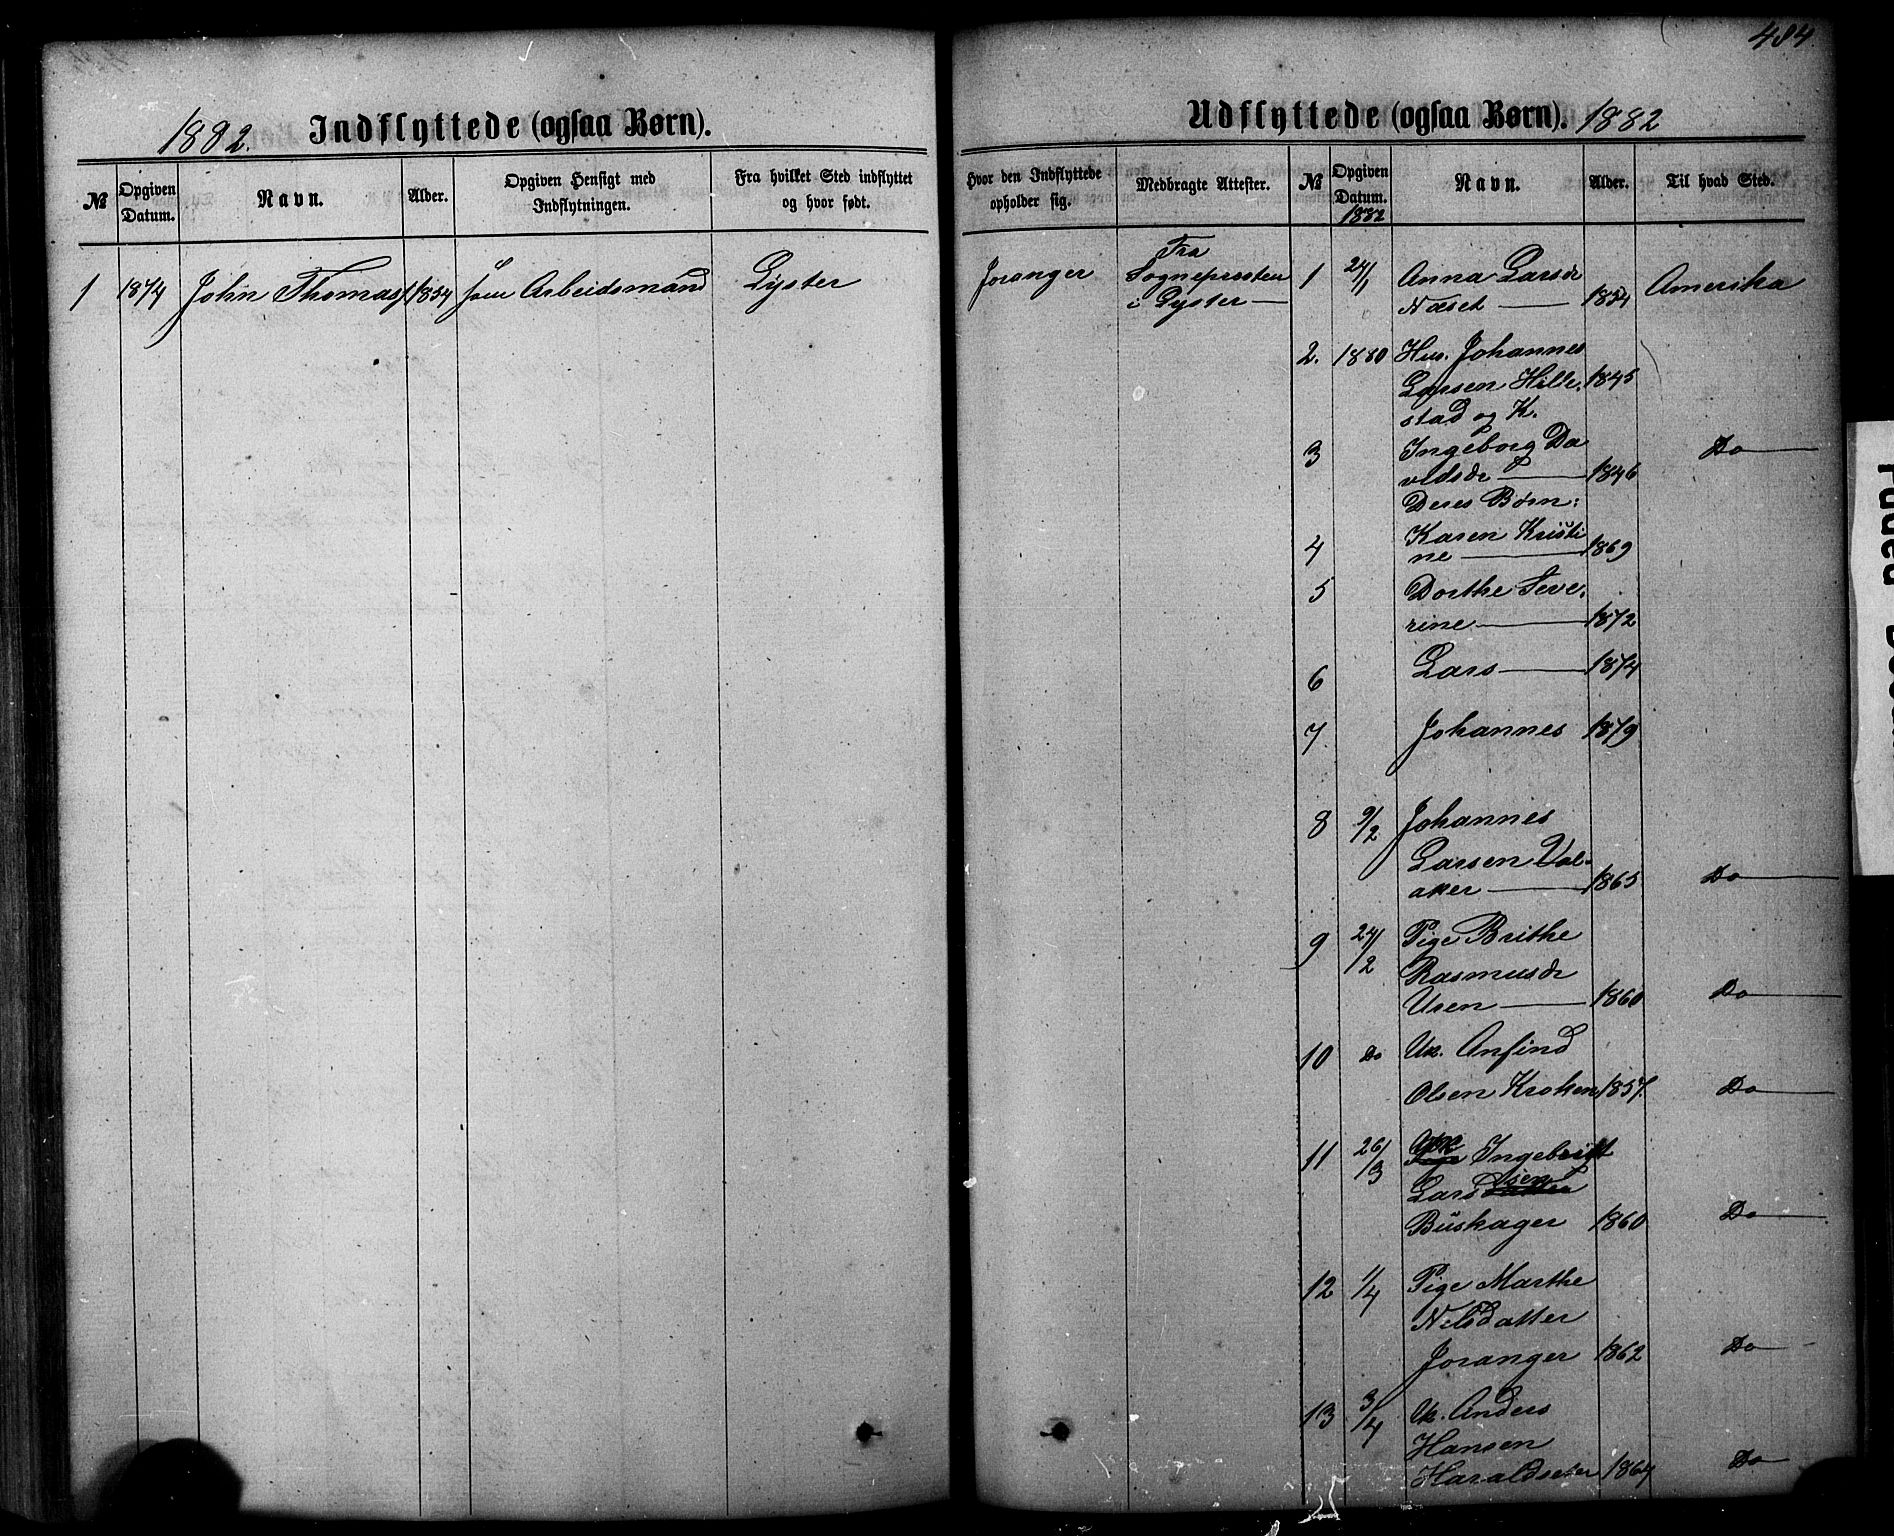 484
1882. Indflyttede (ogsaa Børn).
№ Opgiven Datum. Navn. Alder. Opgiven Hensigt med Indflytningen. Fra hvilket Sted indflyttet og hvor født.
1 18/4 John Thomas 1854 som Arbeidsmand Lyster
Udflyttede (ogsaa Børn). 1882
Hvor den Indflyttede opholder sig. Medbragte Attester. № Opgiven Datum. 1882 Navn. Alder. Til hvad Sted.
Joranger Fra
Sognepresten
i Lyster
1 24/1 Anna Larsdr
Næset 1854 Amerika
2. 1880 Hus. Johannes
Larsen Hille-
stad og K. 1845
3 Ingeborg Da
vidsdr 1846 Do
Deres Børn:
4 Karen Kristi
ne 1869
5 Dorthe Seve-
rine 1872
6 Lars 1874
7. Johannes 1879
8 9/2 Johannes
Larsen Val-
aker 1865 Do
9 24/2 Pige Brithe
Rasmusdr
Uren 1860 Do
10 Do Uk. Anfind
Olsen Kroken 1857. Do
11 26/3 Ingebrigt
Larssen
Buskager 1860 Do
12 1/4 Pige Marthe
Nilsdatter
Joranger 1862 Do
13 3/4 Uk. Anders
Hansen
Haraldseter 1864 Do